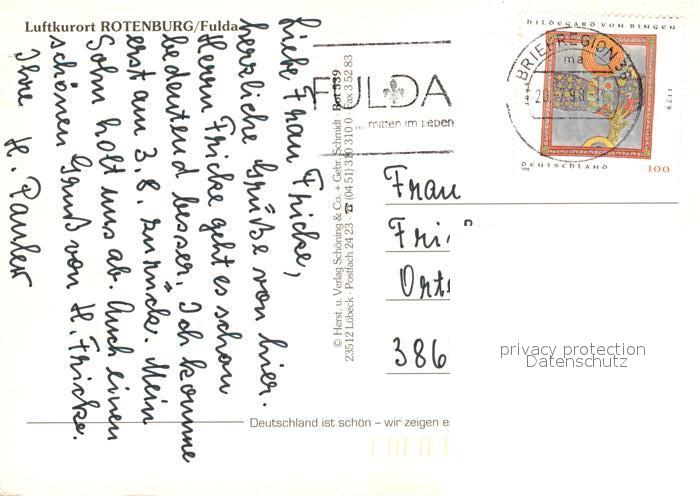 Luftkurort ROTENBURG/Fulda
Liebe Frau Fricke,
herzliche Grüße von hier.
Herrn Fricke geht es schon
bedeutend besser. Ich komme
erst am 3.8. zurück. Mein
Sohn holt uns ab. Auch einen
schönen Gruß von H. Fricke.
Ihre H. Pauker
© Herst. u. Verlag Schöning & Co. + Gebr. Schmidt · Rot 539
23512 Lübeck · Postfach 24 23 · ☎ (04 51) 3 10 310 · Fax 3 52 83
FULDA
... mitten im Leben
BRIEFREGION 36
ma
HILDEGARD VON BINGEN
1098
1179
DEUTSCHLAND
100
Frau
Fri
Orts
386
privacy protection
Datenschutz
Deutschland ist schön – wir zeigen e